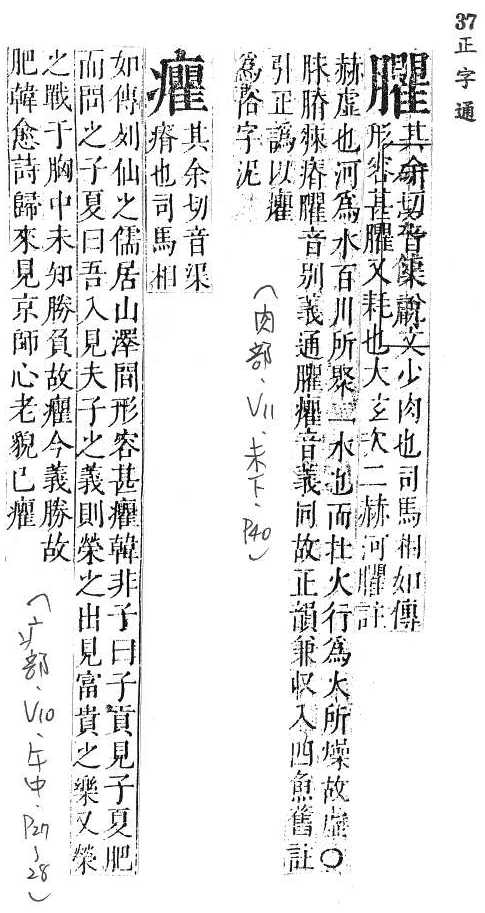 37正字通
臞
其余切音渠說文少肉也司馬相如傳
形容甚臞又耗也大玄次二赫河臞註
赫虛也河為水百川所聚二水也而壯火行為火所燥故虛○
脙膌瘠臞音別義通臞癯音義同故正韻兼収入四魚舊註
引正譌以癯
為俗字泥
(肉部、V11、未下、P40)
癯
其余切音渠
瘠也司馬相
如傳列仙之儒居山澤間形容甚癯韓非子曰子貢見子夏肥
而問之子夏曰吾入見夫子之義則榮之出見富貴之樂又榮
之戰于胸中未知勝負故癯今義勝故
肥韓愈詩歸來見京師心老貌已癯
(疒部、V10、午中、P27~28)